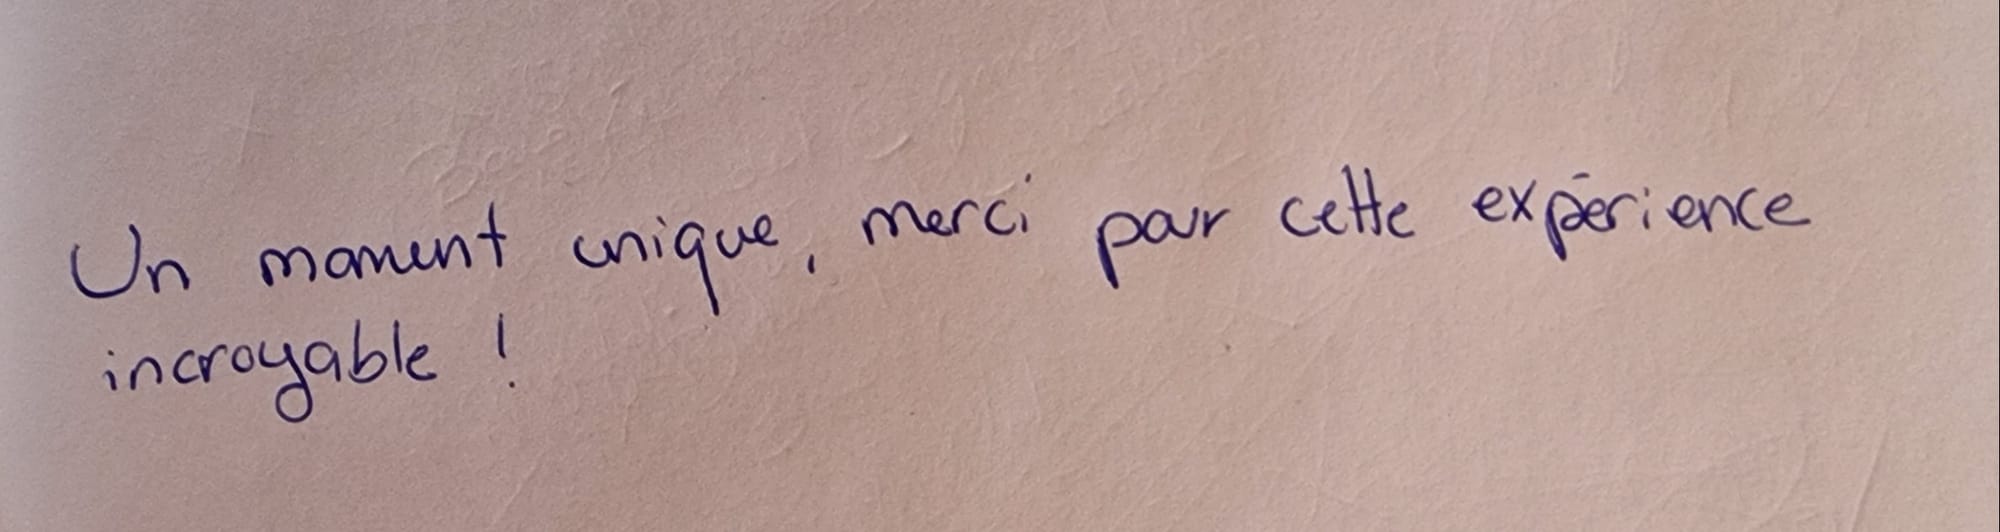 Un moment unique, merci pour cette expérience
incroyable !